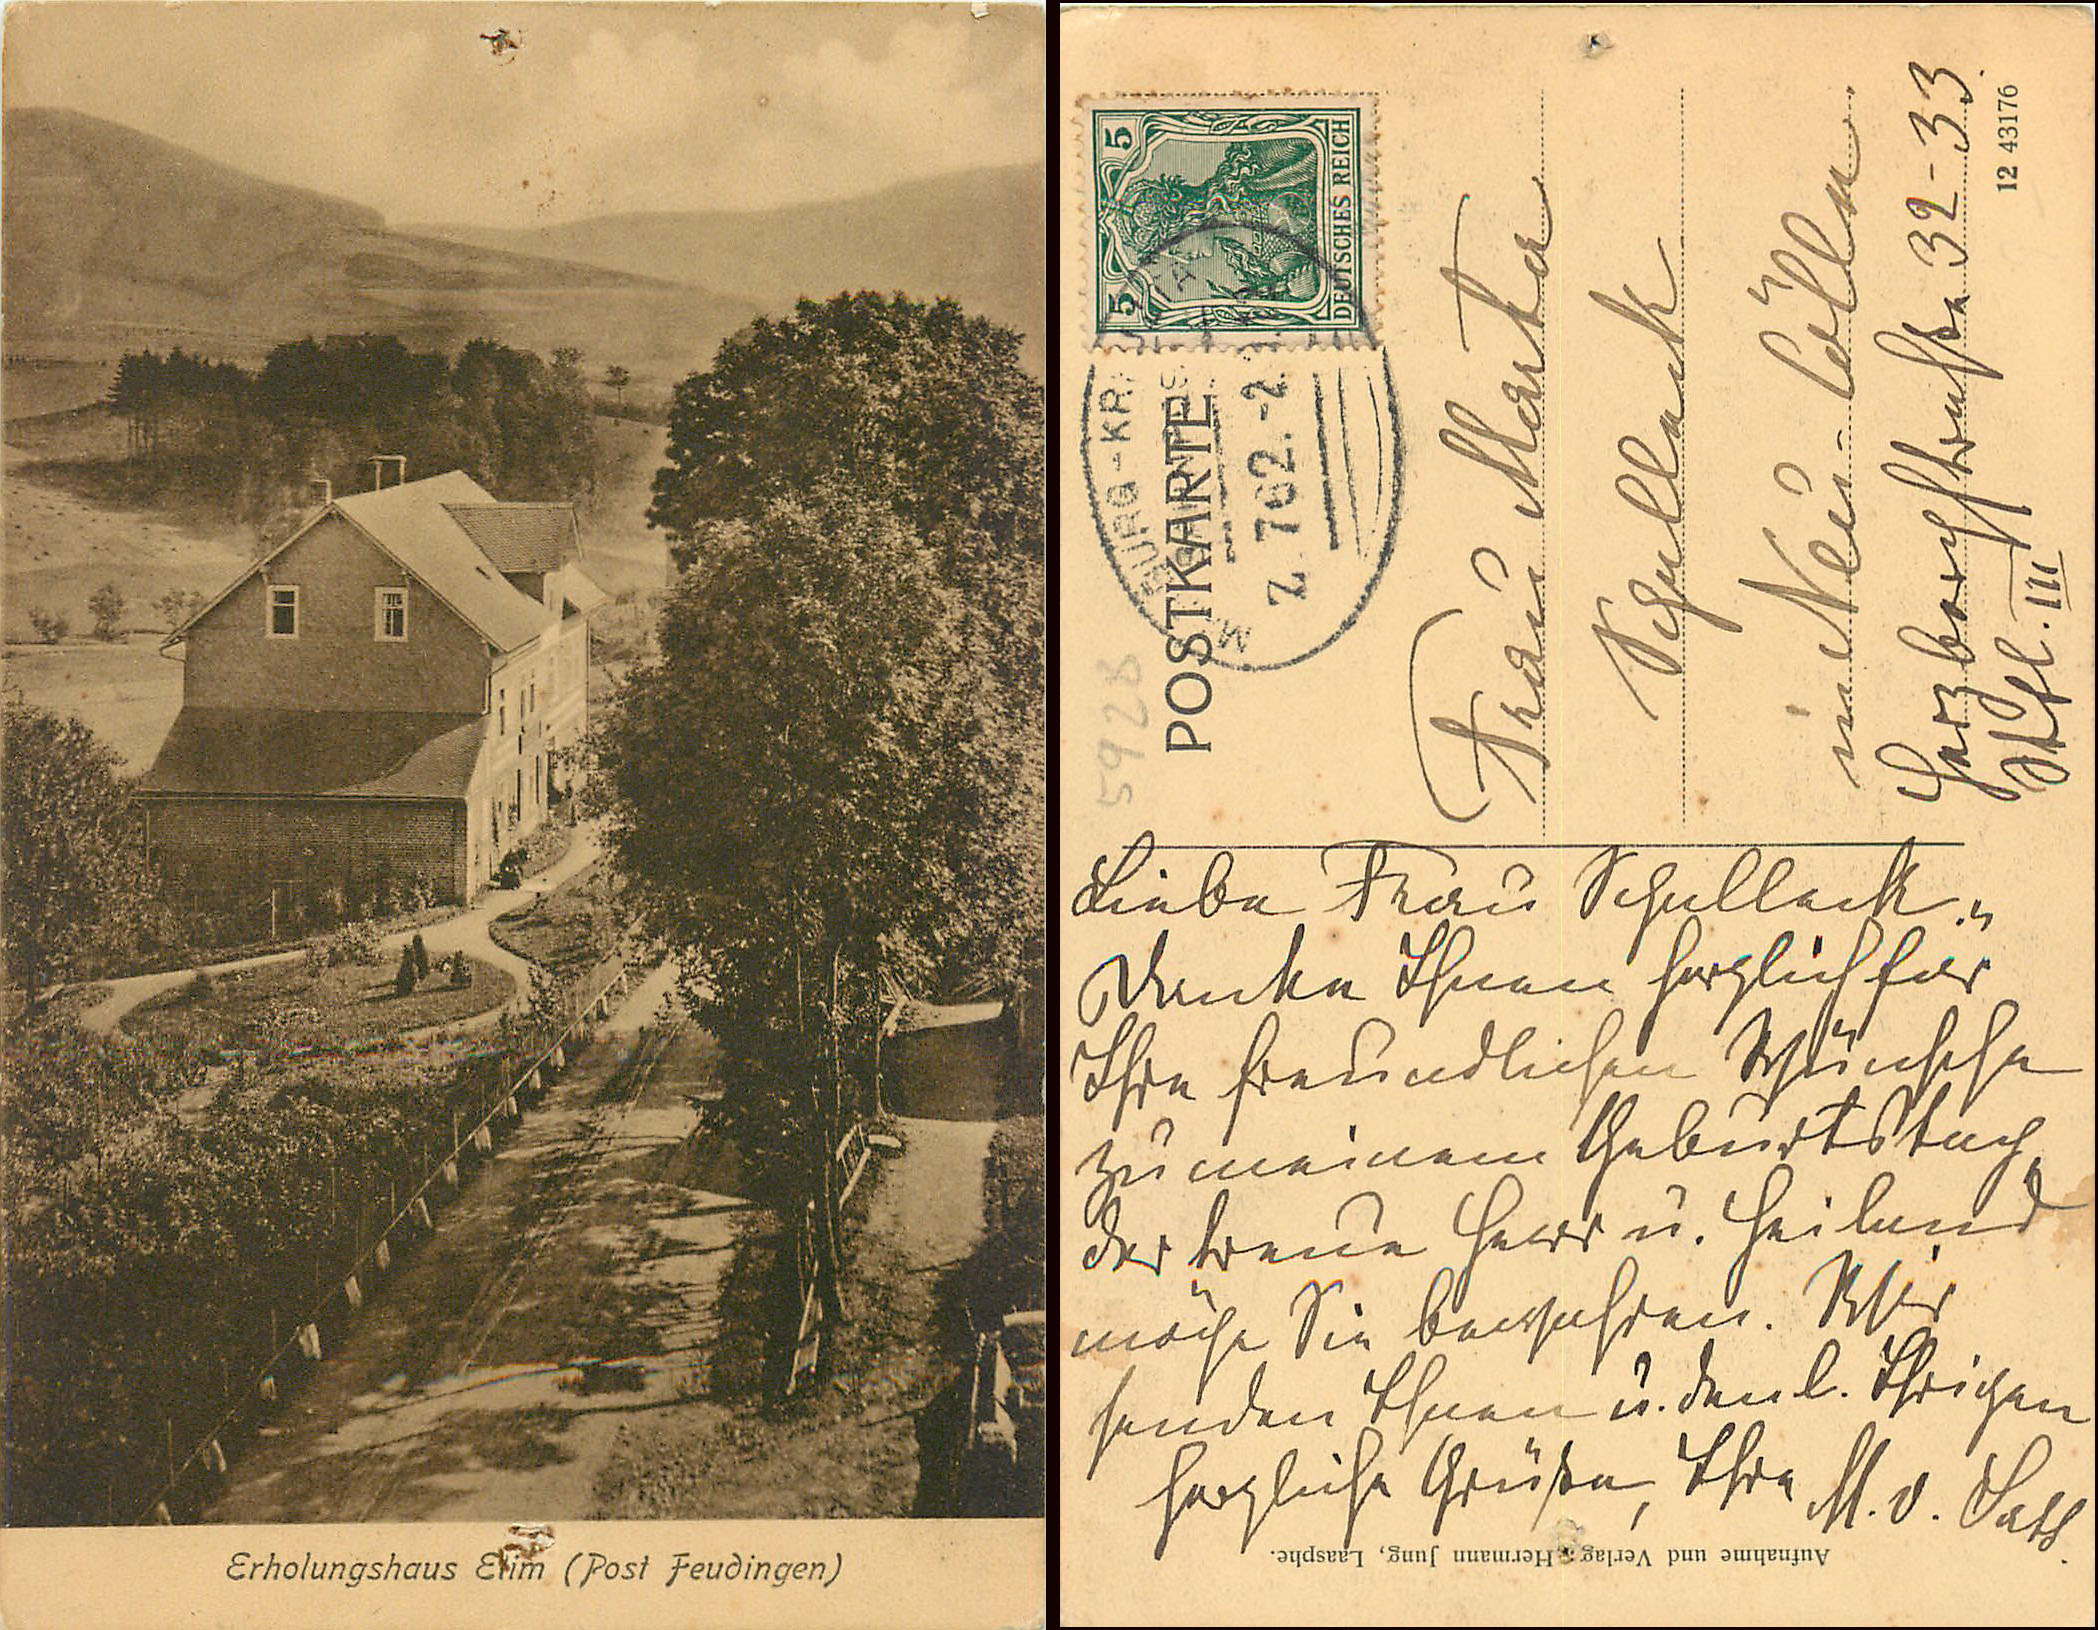 Erholungshaus Elim (Post Feudingen)
POSTKARTE
5
5
DEUTSCHES REICH
BURG-KR
Z. 762.-2
5928
Frau Marta
Schullack
in Neu-Cölln
Harzbergstrasse 32-33.
Stfl. III
12 43176
Liebe Frau Schullack.,
Danke Ihnen herzlich für
Ihre freundlichen Wünsche
zu meinem Geburtstag,
der treue Herr u. Heiland
möge Sie bewahren. Wir
senden Ihnen u. den l. Ihrigen
herzliche Grüße, Ihre M. v.
Aufnahme und Verlag: Hermann Jung, Laasphe.